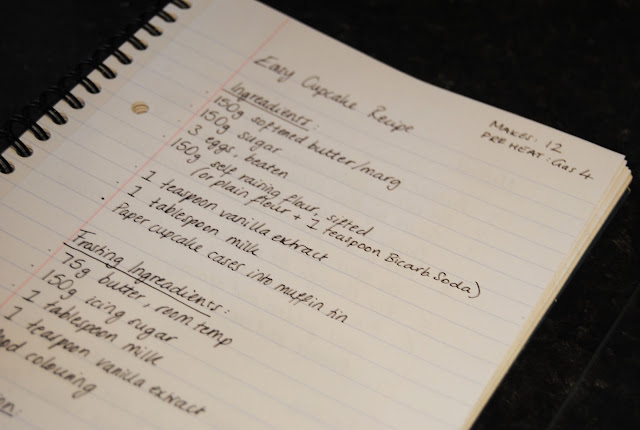 Easy Cupcake Recipe
MAKES: 12
PRE HEAT: Gas 4
Ingredients:
150g softened butter/marg
150g sugar
3 eggs, beaten
150g self raising flour, sifted
(or plain flour + 1 teaspoon Bicarb Soda)
1 teaspoon vanilla extract
1 tablespoon milk
Paper cupcake cases into muffin tin
Frosting Ingredients:
75g butter, room temp
150g icing sugar
1 tablespoon milk
1 teaspoon vanilla extract
colouring